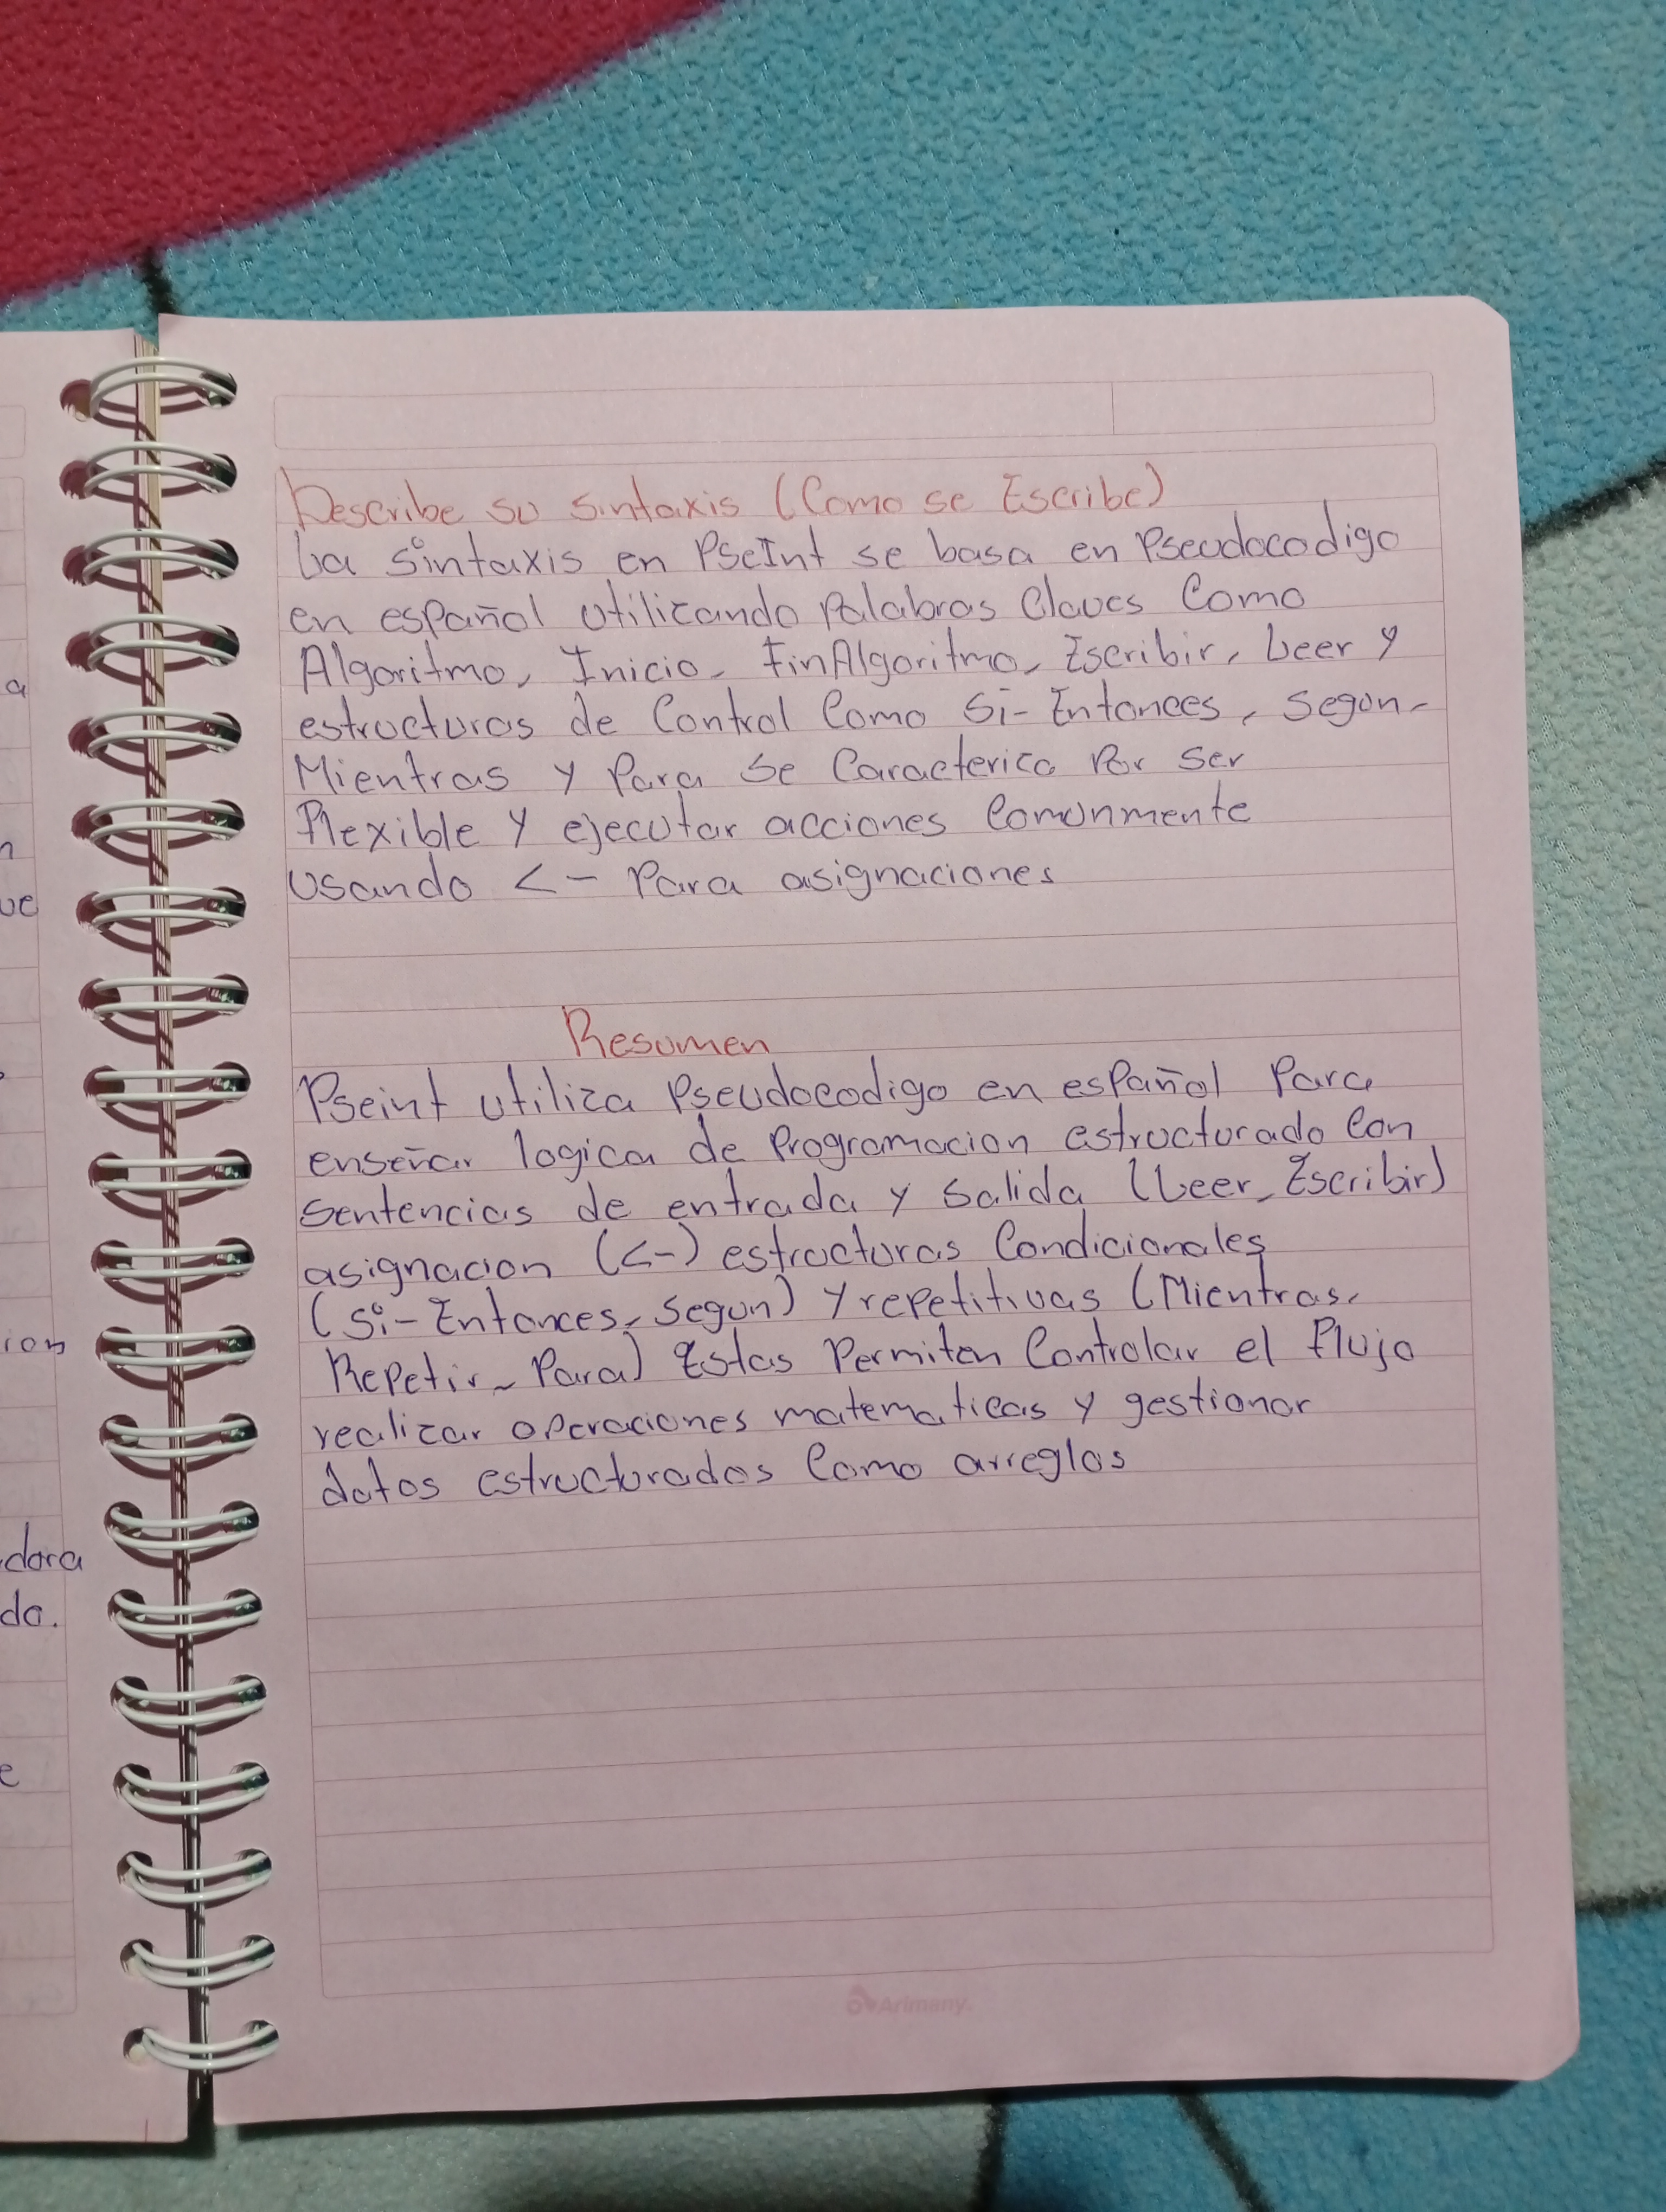 Describe su sintaxis (Como se Escribe)
La sintaxis en PseInt se basa en Pseudocodigo
en español utilizando Palabras Claves Como
Algoritmo, Inicio, FinAlgoritmo, Escribir, Leer y
estructuras de Control Como Si-Entonces, Segun,
Mientras y Para Se Caracterica Por Ser
Flexible y ejecutar acciones Comunmente
Usando <- Para asignaciones
Resumen
Pseint utiliza Pseudocodigo en español Para
enseñar logica de Programacion estructurado Con
Sentencias de entrada y Salida (Leer, Escribir)
asignacion (<-) estructuras Condicionales
(Si-Entonces, Segun) y repetitivas (Mientras,
Repetir, Para) Estas Permiten Controlar el Flujo
realizar operaciones matematicas y gestionar
datos estructurados Como arreglos
Arimany.
a
n
ue
ion
dora
do.
e